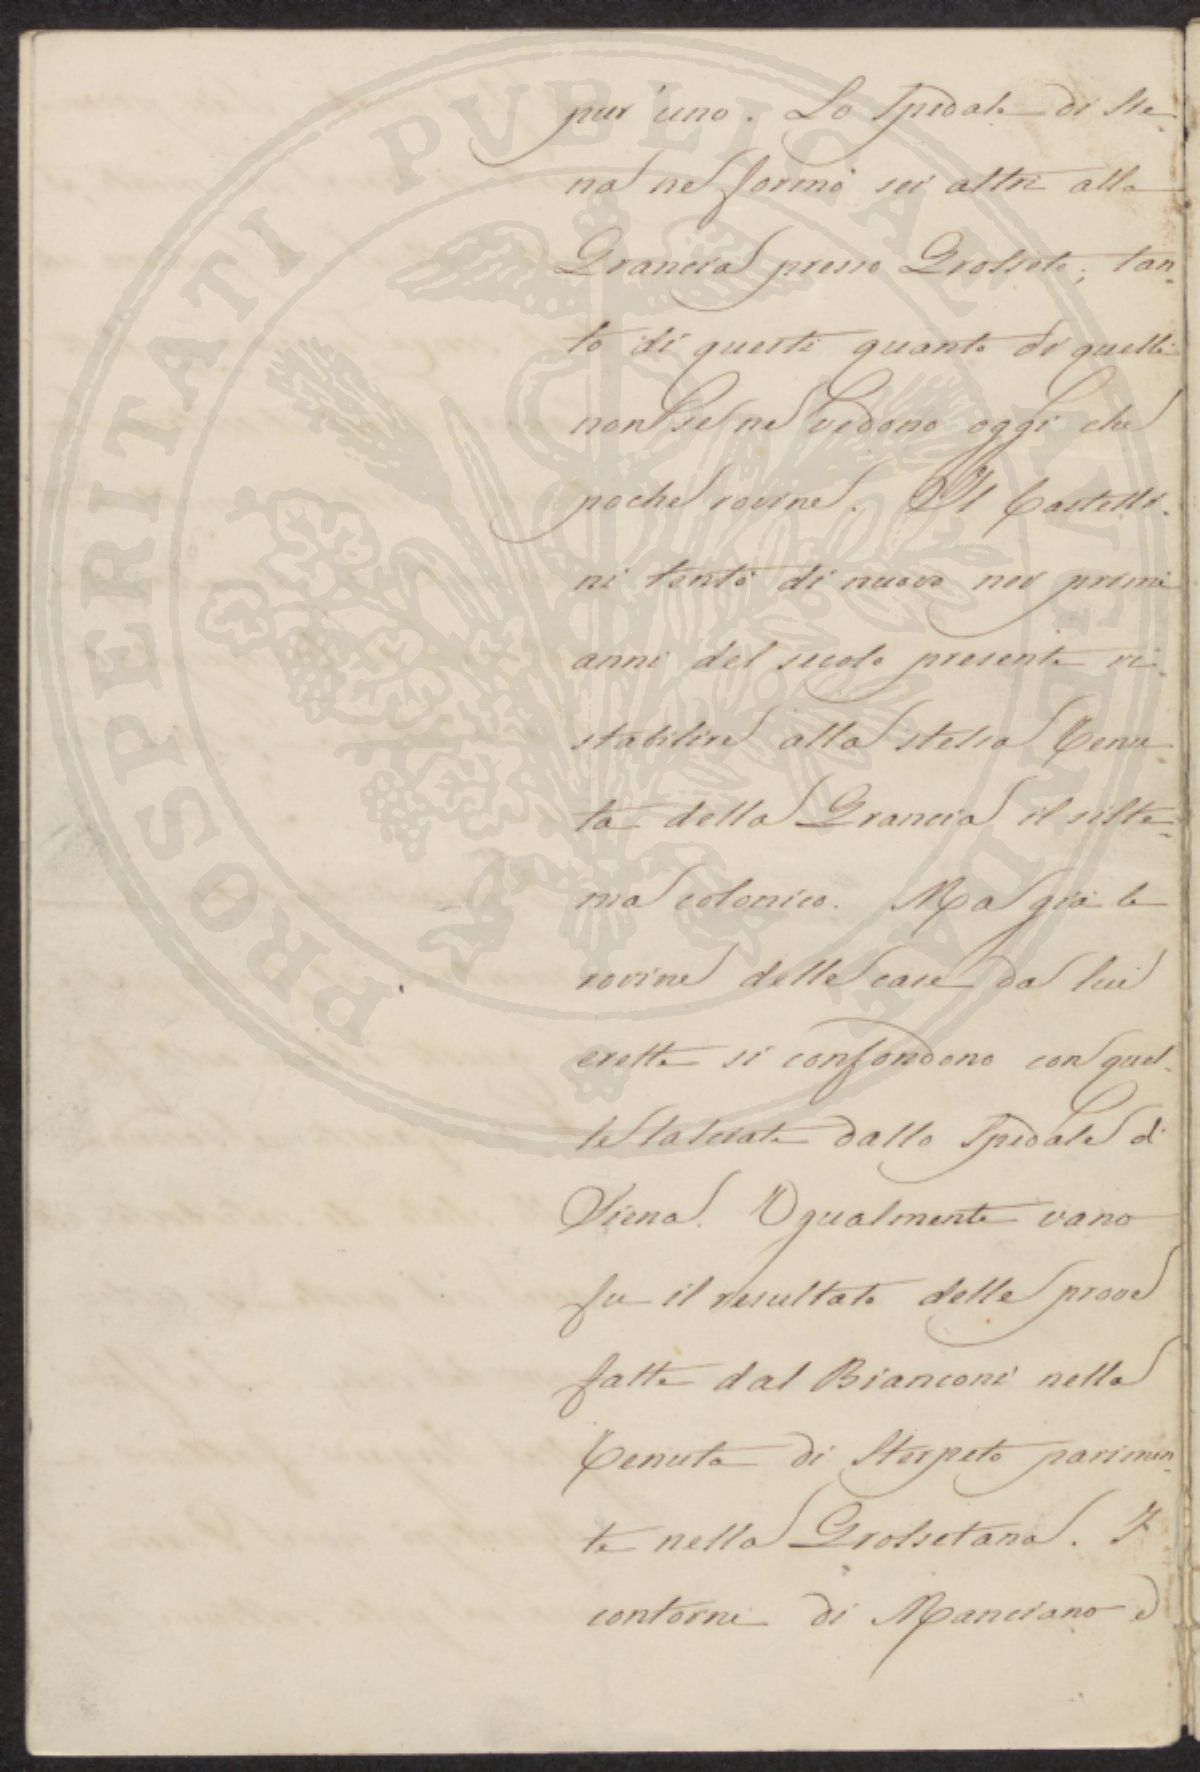 pur'uno. Lo Spedale di Sie-
na ne formò sei altri alla
Grancia presso Grosseto; tan-
to di questi quanto di quelli
non se ne vedono oggi che
poche rovine. Il Castelli-
ni tentò di nuovo nei primi
anni del secolo presente ri-
stabilire alla stessa Tenu-
ta della Grancia il siste-
ma colonico. Ma già le
rovine delle case da lui
erette si confondono con quel-
le lasciate dallo Spedale di
Siena. Ugualmente vano
fu il resultato delle prove
fatte dal Bianconi nella
Tenuta di Sterpeto parimen-
te nella Grossetana. I
contorni di Manciano e
PROSPERITATI PUBLICAE AUGENDAE